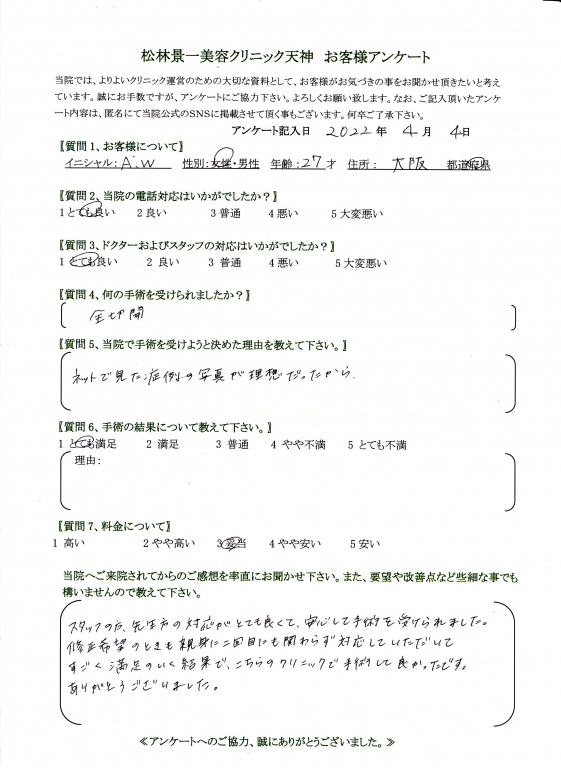 松林景一美容クリニック天神　お客様アンケート
当院では、よりよいクリニック運営のための大切な資料として、お客様がお気づきの事をお聞かせ頂きたいと考え
ています。誠にお手数ですが、アンケートにご協力下さい。よろしくお願い致します。なお、ご記入頂いたアンケ
ート内容は、匿名にて当院公式のSNSに掲載させて頂く事もございます。何卒ご了承下さい。
アンケート記入日　2022年　4月　4日
【質問1、お客様について】
イニシャル：A.W　性別：女性・男性　年齢：27才　住所：　大阪　都道府県
【質問2、当院の電話対応はいかがでしたか？】
1 とても良い　2 良い　3 普通　4 悪い　5 大変悪い
【質問3、ドクターおよびスタッフの対応はいかがでしたか？】
1 とても良い　2 良い　3 普通　4 悪い　5 大変悪い
【質問4、何の手術を受けられましたか？】
全切開
【質問5、当院で手術を受けようと決めた理由を教えて下さい。】
ネットで見た症例の写真が理想だったから.
【質問6、手術の結果について教えて下さい。】
1 とても満足　2 満足　3 普通　4 やや不満　5 とても不満
理由：
【質問7、料金について】
1 高い　2 やや高い　3 妥当　4 やや安い　5 安い
当院へご来院されてからのご感想を率直にお聞かせ下さい。また、要望や改善点など些細な事でも
構いませんので教えて下さい。
スタッフの方、先生方の対応がとても良くて、安心して手術を受けられました。
修正希望のときも親身に二回目にも関わらず対応していただいて
すごく満足のいく結果で、こちらのクリニックで手術して良かったです。
ありがとうございました。
≪アンケートへのご協力、誠にありがとうございました。≫